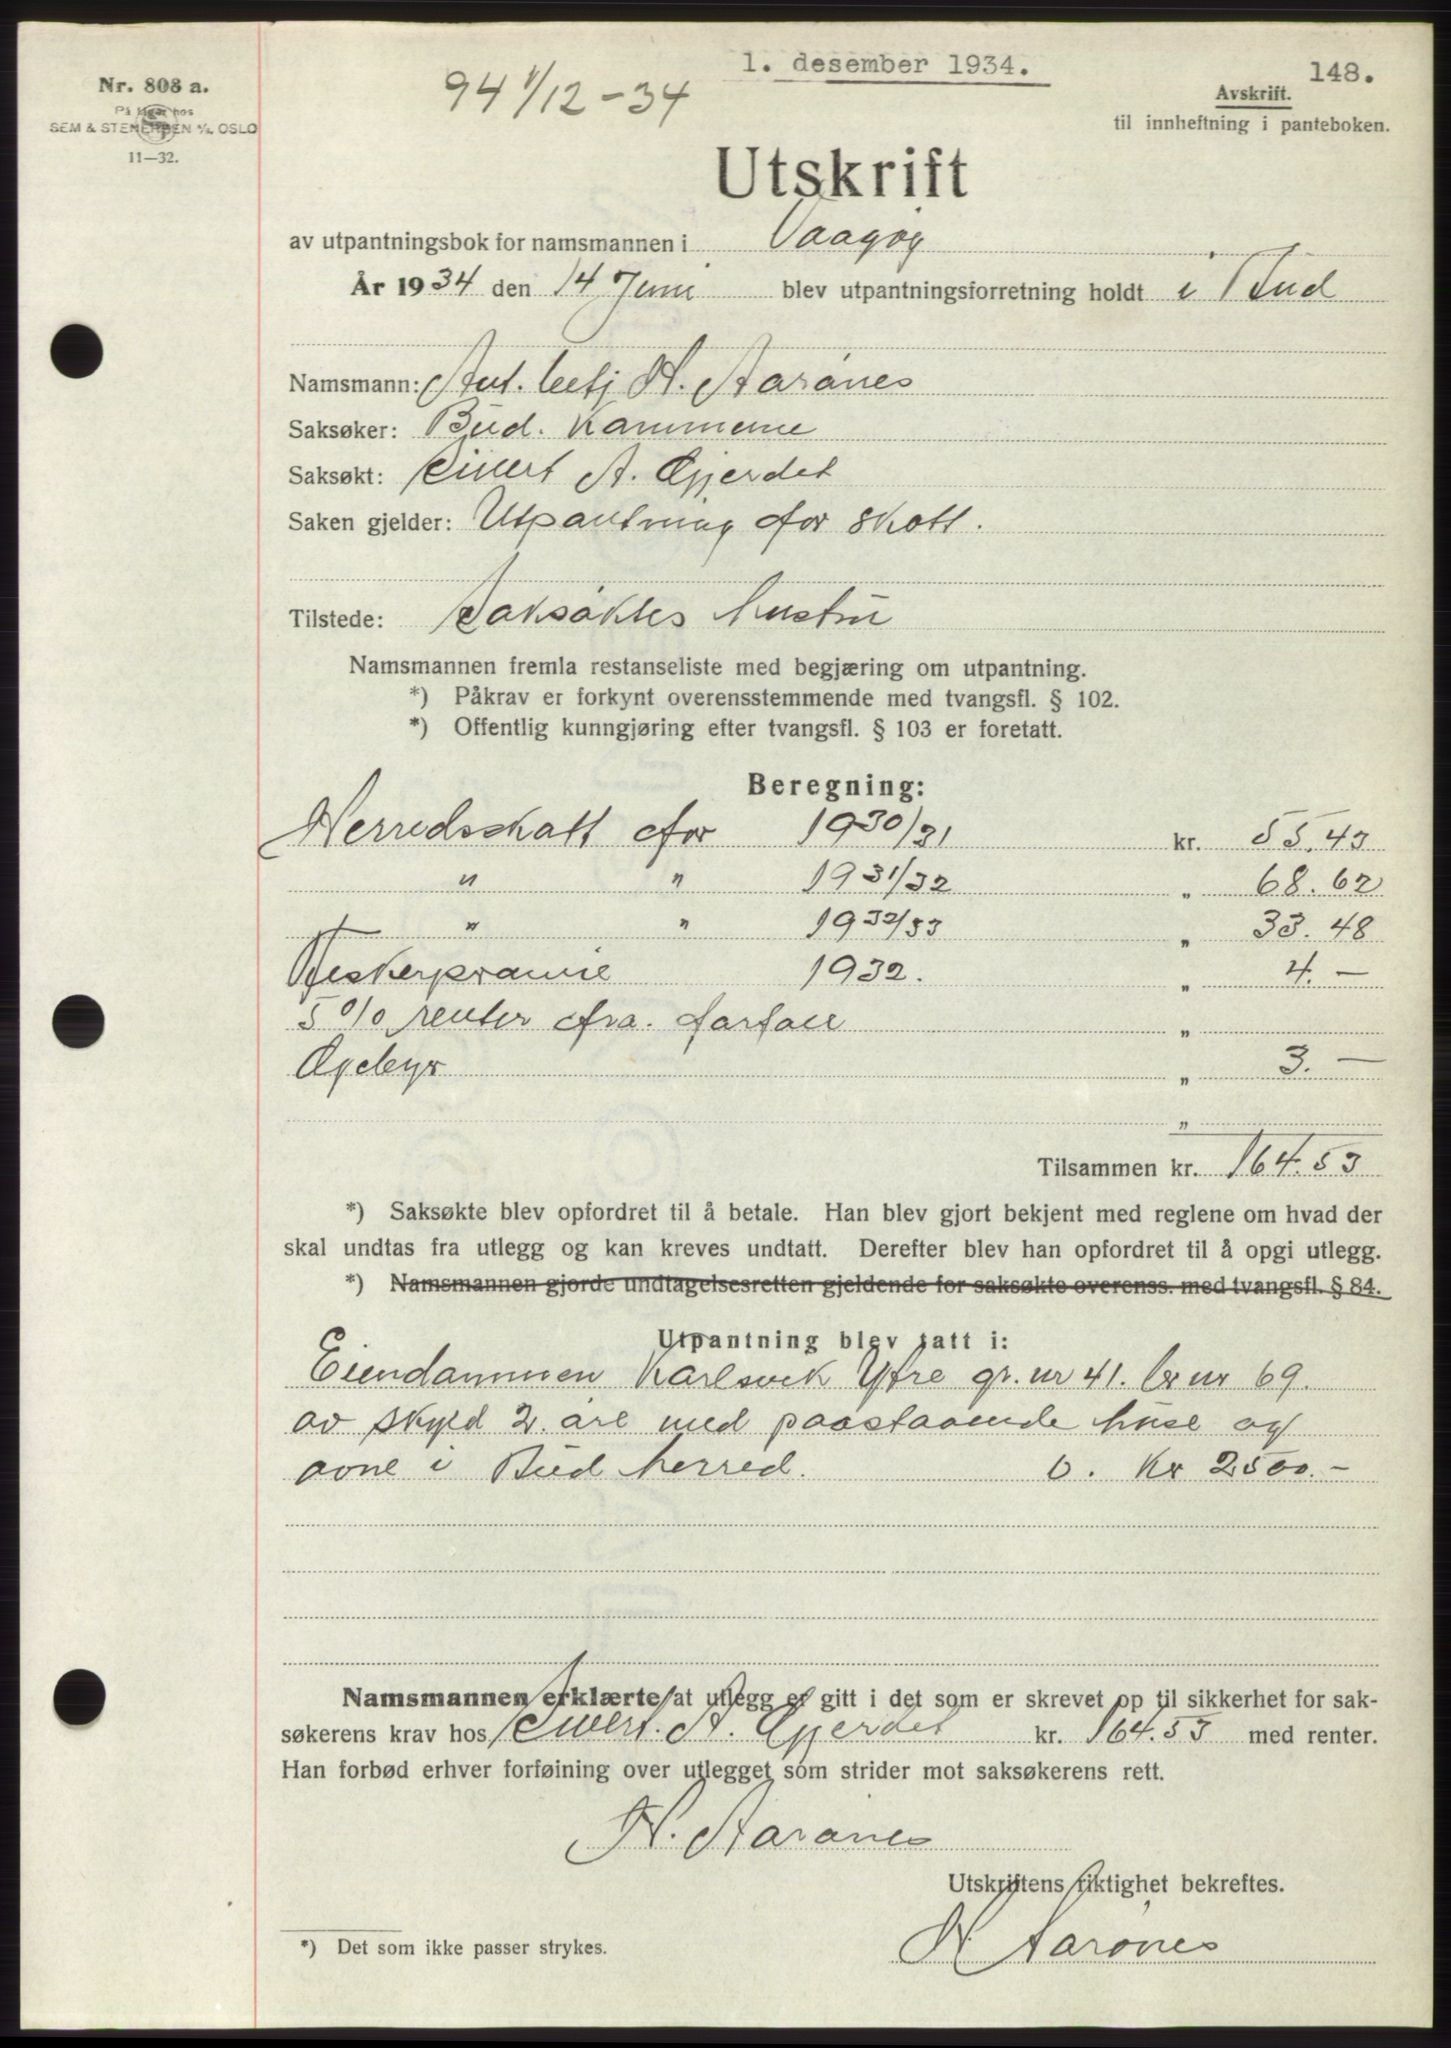 1. desember 1934.
148.
94 1/12-34
Nr. 808 a.
På lager hos
SEM & STENERSEN A/S, OSLO
11—32.
Avskrift.
til innheftning i panteboken.
Utskrift
av utpantningsbok for namsmannen i Vaagøy
År 1934 den 14 Juni blev utpantningsforretning holdt i Bud
Namsmann: Aut. betj H. Aarønes
Saksøker: Bud. Kommune
Saksøkt: Sivert A. Gjerdet
Saken gjelder: Utpantning for skatt.
Tilstede: Saksøktes hustru
Namsmannen fremla restanseliste med begjæring om utpantning.
*) Påkrav er forkynt overensstemmende med tvangsfl. § 102.
*) Offentlig kunngjøring efter tvangsfl. § 103 er foretatt.
Beregning:
Herredsskatt for 1930/31 kr. 55.43
" " 1931/32 „ 68.62
" " 1932/33 „ 33.48
Fiskerpræmie 1932. „ 4.—
5 % renter fra. forfall „
Gebyr „ 3.—
„
Tilsammen kr. 164.53
*) Saksøkte blev opfordret til å betale. Han blev gjort bekjent med reglene om hvad der
skal undtas fra utlegg og kan kreves undtatt. Derefter blev han opfordret til å opgi utlegg.
*) Namsmannen gjorde undtagelsesretten gjeldende for saksøkte overenss. med tvangsfl. § 84.
Utpantning blev tatt i:
Eiendammen Karlsvik Ytre gr. nr 41. br nr 69.
av skyld 2. øre med paastaaende huse og
ovne i Bud herred. v. Kr 2500.-
Namsmannen erklærte at utlegg er gitt i det som er skrevet op til sikkerhet for sak-
søkerens krav hos Sivert. A. Gjerdet kr. 164.53 med renter.
Han forbød erhver forføining over utlegget som strider mot saksøkerens rett.
H. Aarønes
Utskriftens riktighet bekreftes.
H Aarønes
*) Det som ikke passer strykes.